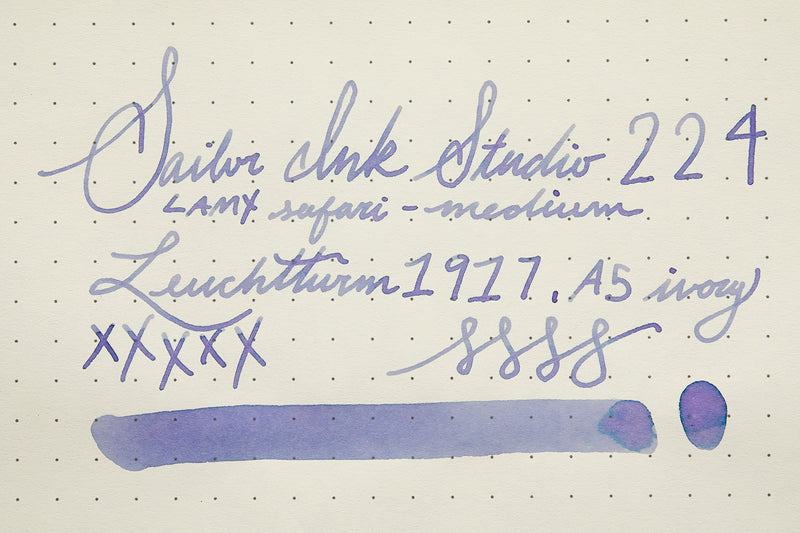 Sailor Ink Studio 224
LAMY safari - medium
Leuchtturm 1917, A5 ivory
XXXXX